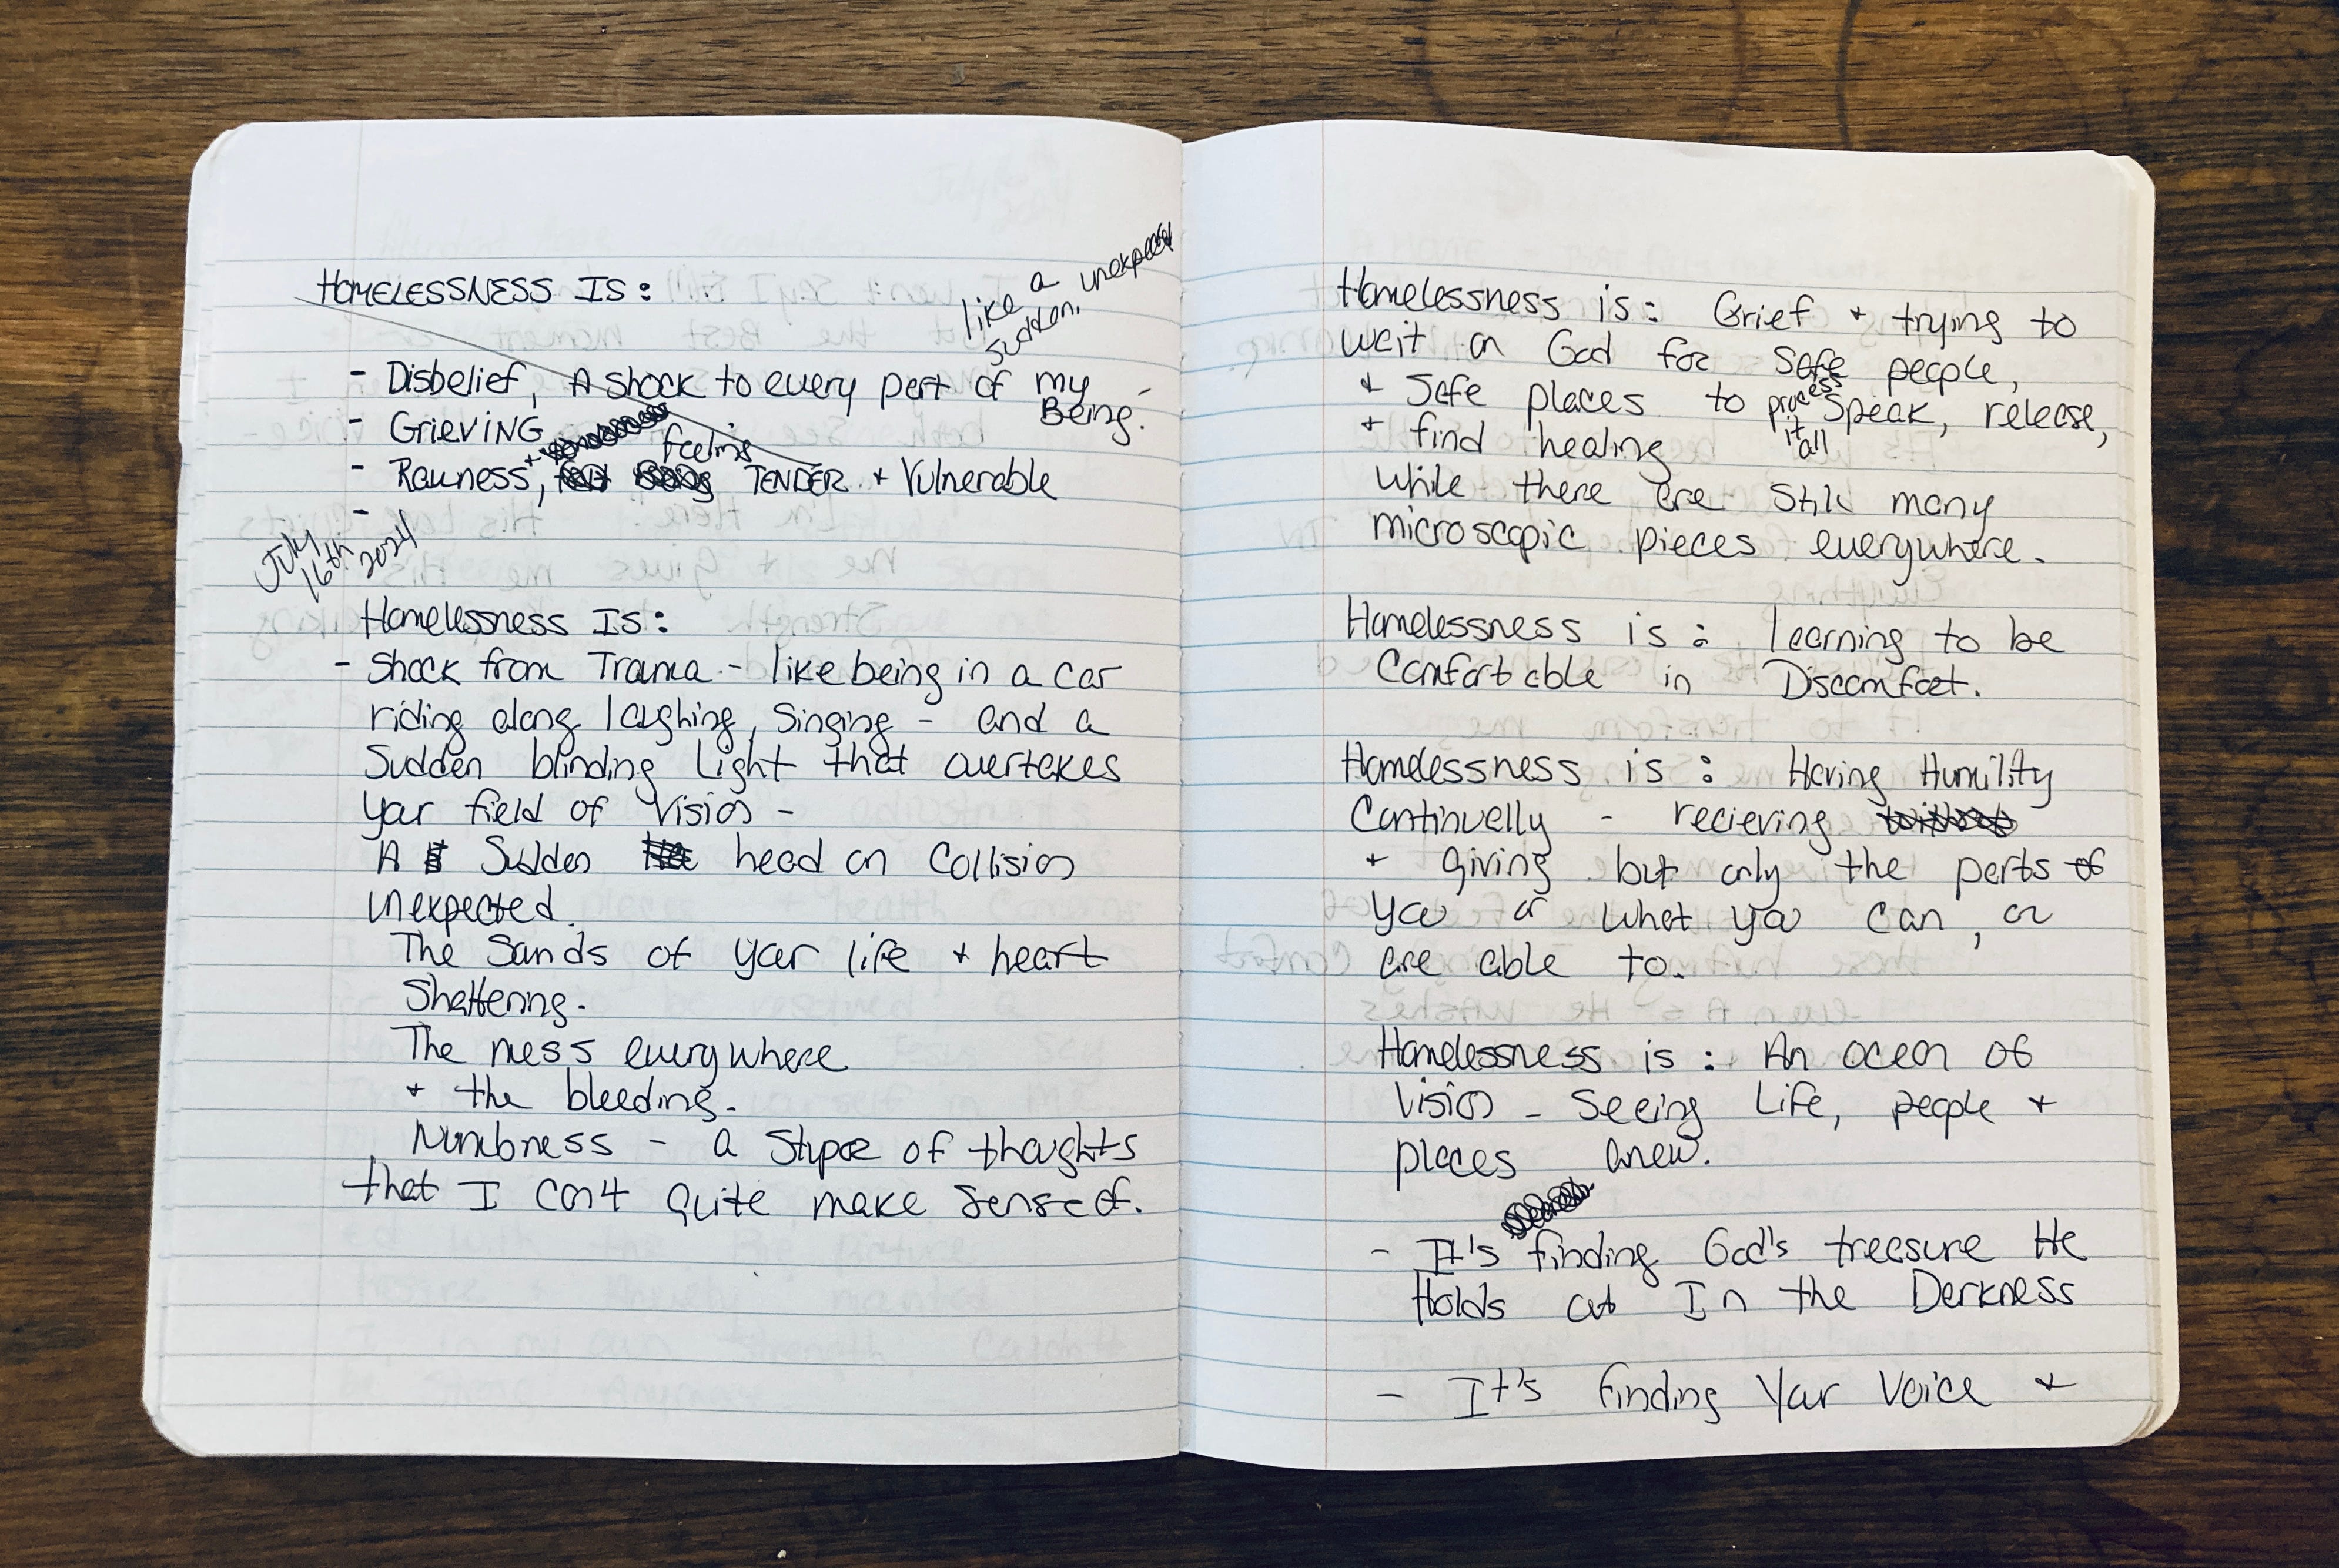 HOMELESSNESS IS:
like a
sudden, unexpected
- Disbelief, A shock to every part of my
Being.
- GRIEVING
feeling
- Rawness, + TENDER + Vulnerable
-
July
16th 2024
Homelessness Is:
- Shock from Trama - like being in a car
riding along laughing, singing - and a
Sudden blinding light that overtakes
your field of vision -
A Sudden head on collision
unexpected.
The Sands of your life + heart
Shattering.
The mess everywhere
+ the bleeding.
Numbness - a Stupor of thoughts
that I can't quite make sense of.
Homelessness is: Grief + trying to
wait on God for safe people,
+ safe places to process it all speak, release,
+ find healing
while there are still many
microscopic pieces everywhere.
Homelessness is: learning to be
Comfortable in Discomfort.
Homelessness is: Having Humility
Continually - recieving
+ giving but only the parts of
you or what you can, or
are able to.
Homelessness is: An ocean of
Vision - Seeing Life, people +
places anew.
- It's finding God's treasure He
Holds out In the Darkness
- It's finding Your Voice +